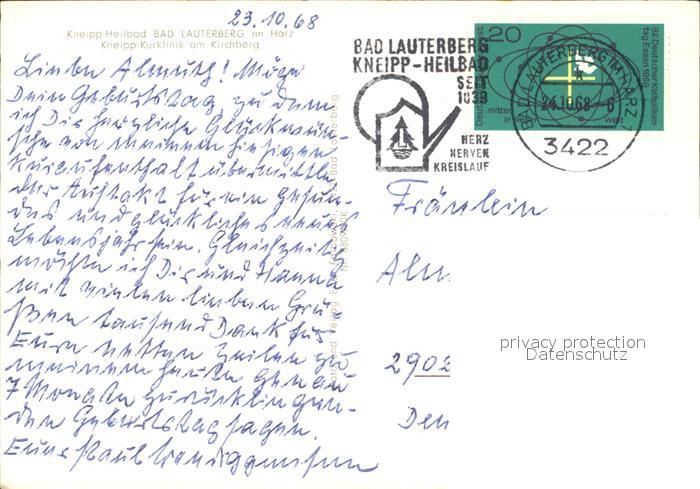 23.10.68
Kneipp-Heilbad BAD LAUTERBERG im Harz
Kneipp-Kurklinik am Kirchberg
Liebe Almuth! Möge
Dein Geburtstag, zu dem
ich Dir herzliche Glückwün-
sche von meinem hiesigen
Kuraufenthalt übermittle,
der Auftakt für ein gesun-
des und glückliches neues
Lebensjahr sein. Gleichzeitig
möchte ich Dir und Hanna
mit vielen lieben Grü-
ßen tausend Dank für
Eure netten Zeilen zu
meinem heute genau
7 Monate zurückliegen-
den Geburtstag sagen.
Euer Paul
BAD LAUTERBERG
KNEIPP-HEILBAD
SEIT
1839
HERZ
NERVEN
KREISLAUF
20
Deutsche Bundespost
82. Deutscher Katholiken-
tag Essen 1968
mitten
in dieser Welt
BAD LAUTERBERG IM HARZ 1
24.10.68-8
3422
Fräulein
Alm
2902
Den
privacy protection
Datenschutz